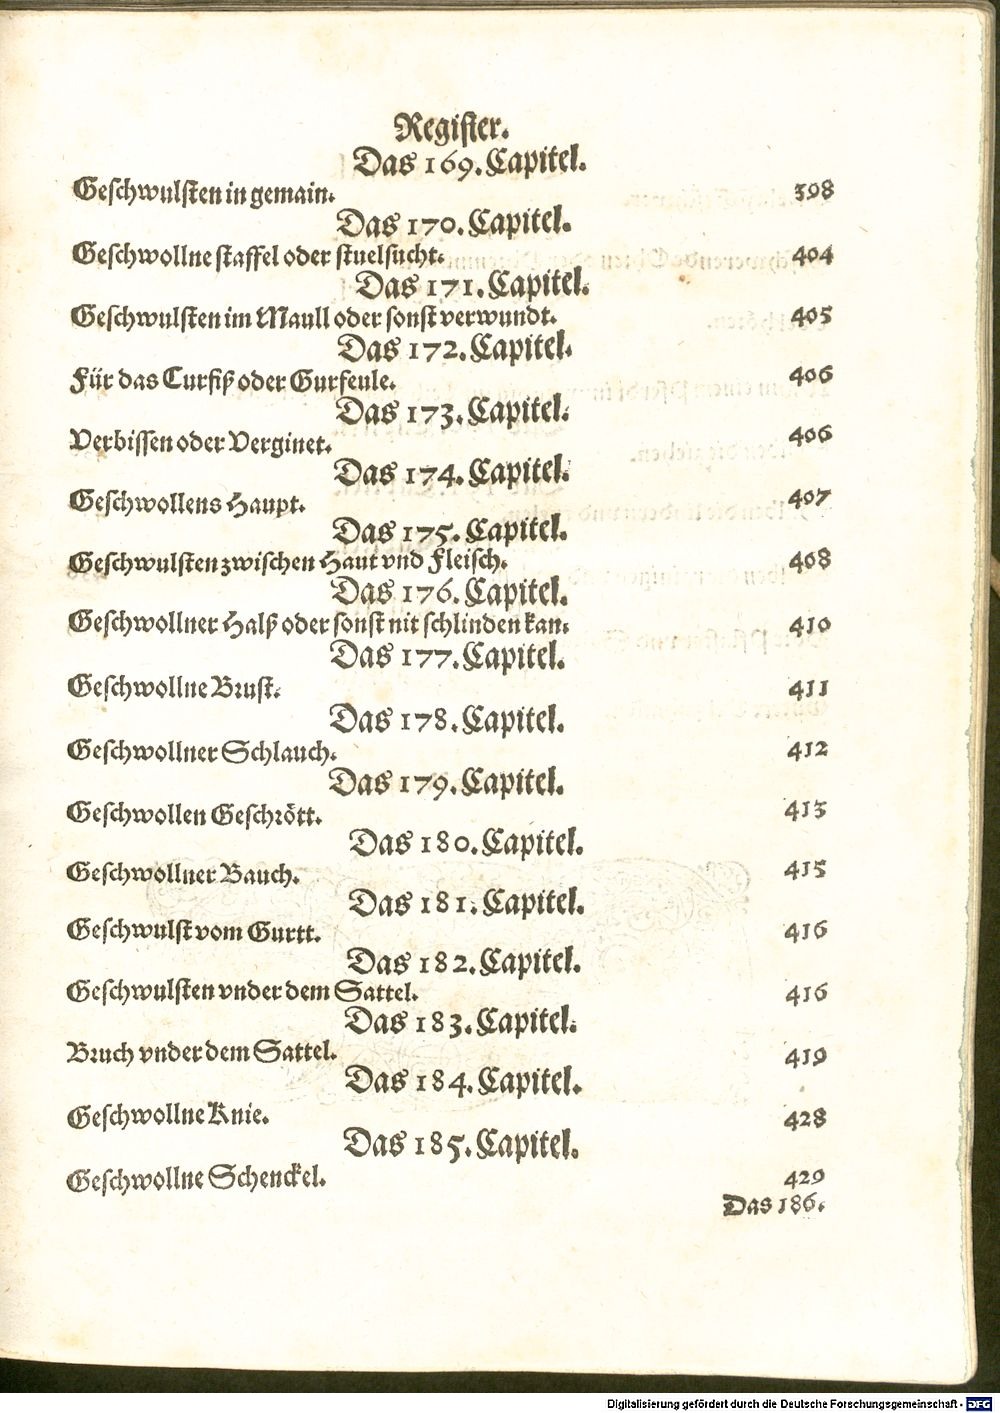 Register.
Das 169. Capitel.
Geschwulsten in gemain. 398
Das 170. Capitel.
Geschwollne staffel oder stuelsucht. 404
Das 171. Capitel.
Geschwulsten im Maull oder sonst verwundt. 405
Das 172. Capitel.
Für das Curfiß oder Gurfeule. 406
Das 173. Capitel.
Verbissen oder Verginet. 406
Das 174. Capitel.
Geschwollens Haupt. 407
Das 175. Capitel.
Geschwulsten zwischen Haut vnd Fleisch. 408
Das 176. Capitel.
Geschwollner Halß oder sonst nit schlinden kan. 410
Das 177. Capitel.
Geschwollne Brust. 411
Das 178. Capitel.
Geschwollner Schlauch. 412
Das 179. Capitel.
Geschwollen Geschrött. 413
Das 180. Capitel.
Geschwollner Bauch. 415
Das 181. Capitel.
Geschwulst vom Gurtt. 416
Das 182. Capitel.
Geschwulsten vnder dem Sattel. 416
Das 183. Capitel.
Bruch vnder dem Sattel. 419
Das 184. Capitel.
Geschwollne Knie. 428
Das 185. Capitel.
Geschwollne Schenckel. 429
Das 186.
Digitalisierung gefördert durch die Deutsche Forschungsgemeinschaft - DFG